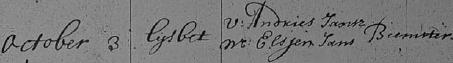 October 3 lysbet v: Andries Jansz
m: Elsjen Jans Beemster.